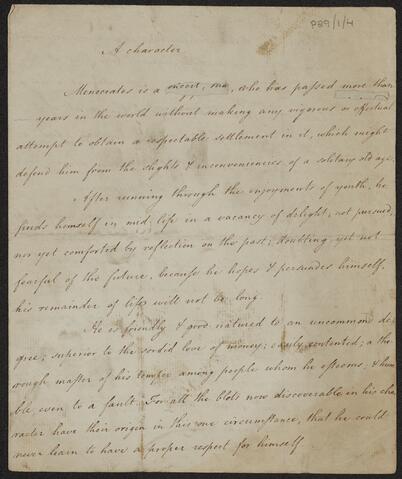 P89/1/4
A character
Menocrates is a man, who has passed more than
years in the world without making any vigorous or effectual
attempt to obtain a respectable settlement in it, which might
defend him from the slights & inconveniencies of a solitary old age.
After running through the enjoyments of youth, he
finds himself in mid, life in a vacancy of delight; not pursued,
nor yet comforted by reflection on the past; doubting, yet not
fearful of the future, because he hopes & persuades himself,
his remainder of life will not be long.
He is friendly & good natured to an uncommon de,
gree; superior to the sordid love of money; easily contented; a tho
rough master of his temper among people whom he esteems; & hum
ble, even to a fault. For all the blots now discoverable in his cha,
racter have their origin in this one circumstance, that he could
never learn to have a proper respect for himself.